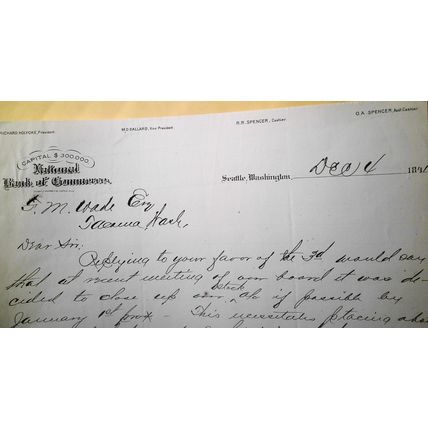 RICHARD HOLYOKE, President.
M.D. BALLARD, Vice President.
R.R. SPENCER, Cashier.
O.A. SPENCER, Asst. Cashier.
CAPITAL $300,000.
National
Bank of Commerce.
Seattle, Washington, Dec 4 189
T. M. Wade Esq
Tacoma Wash.
Dear Sir:
Replying to your favor of the 3d would say
that at recent meeting of our board it was de-
cided to close up our stock if possible by
January 1st prox - This necessitates placing